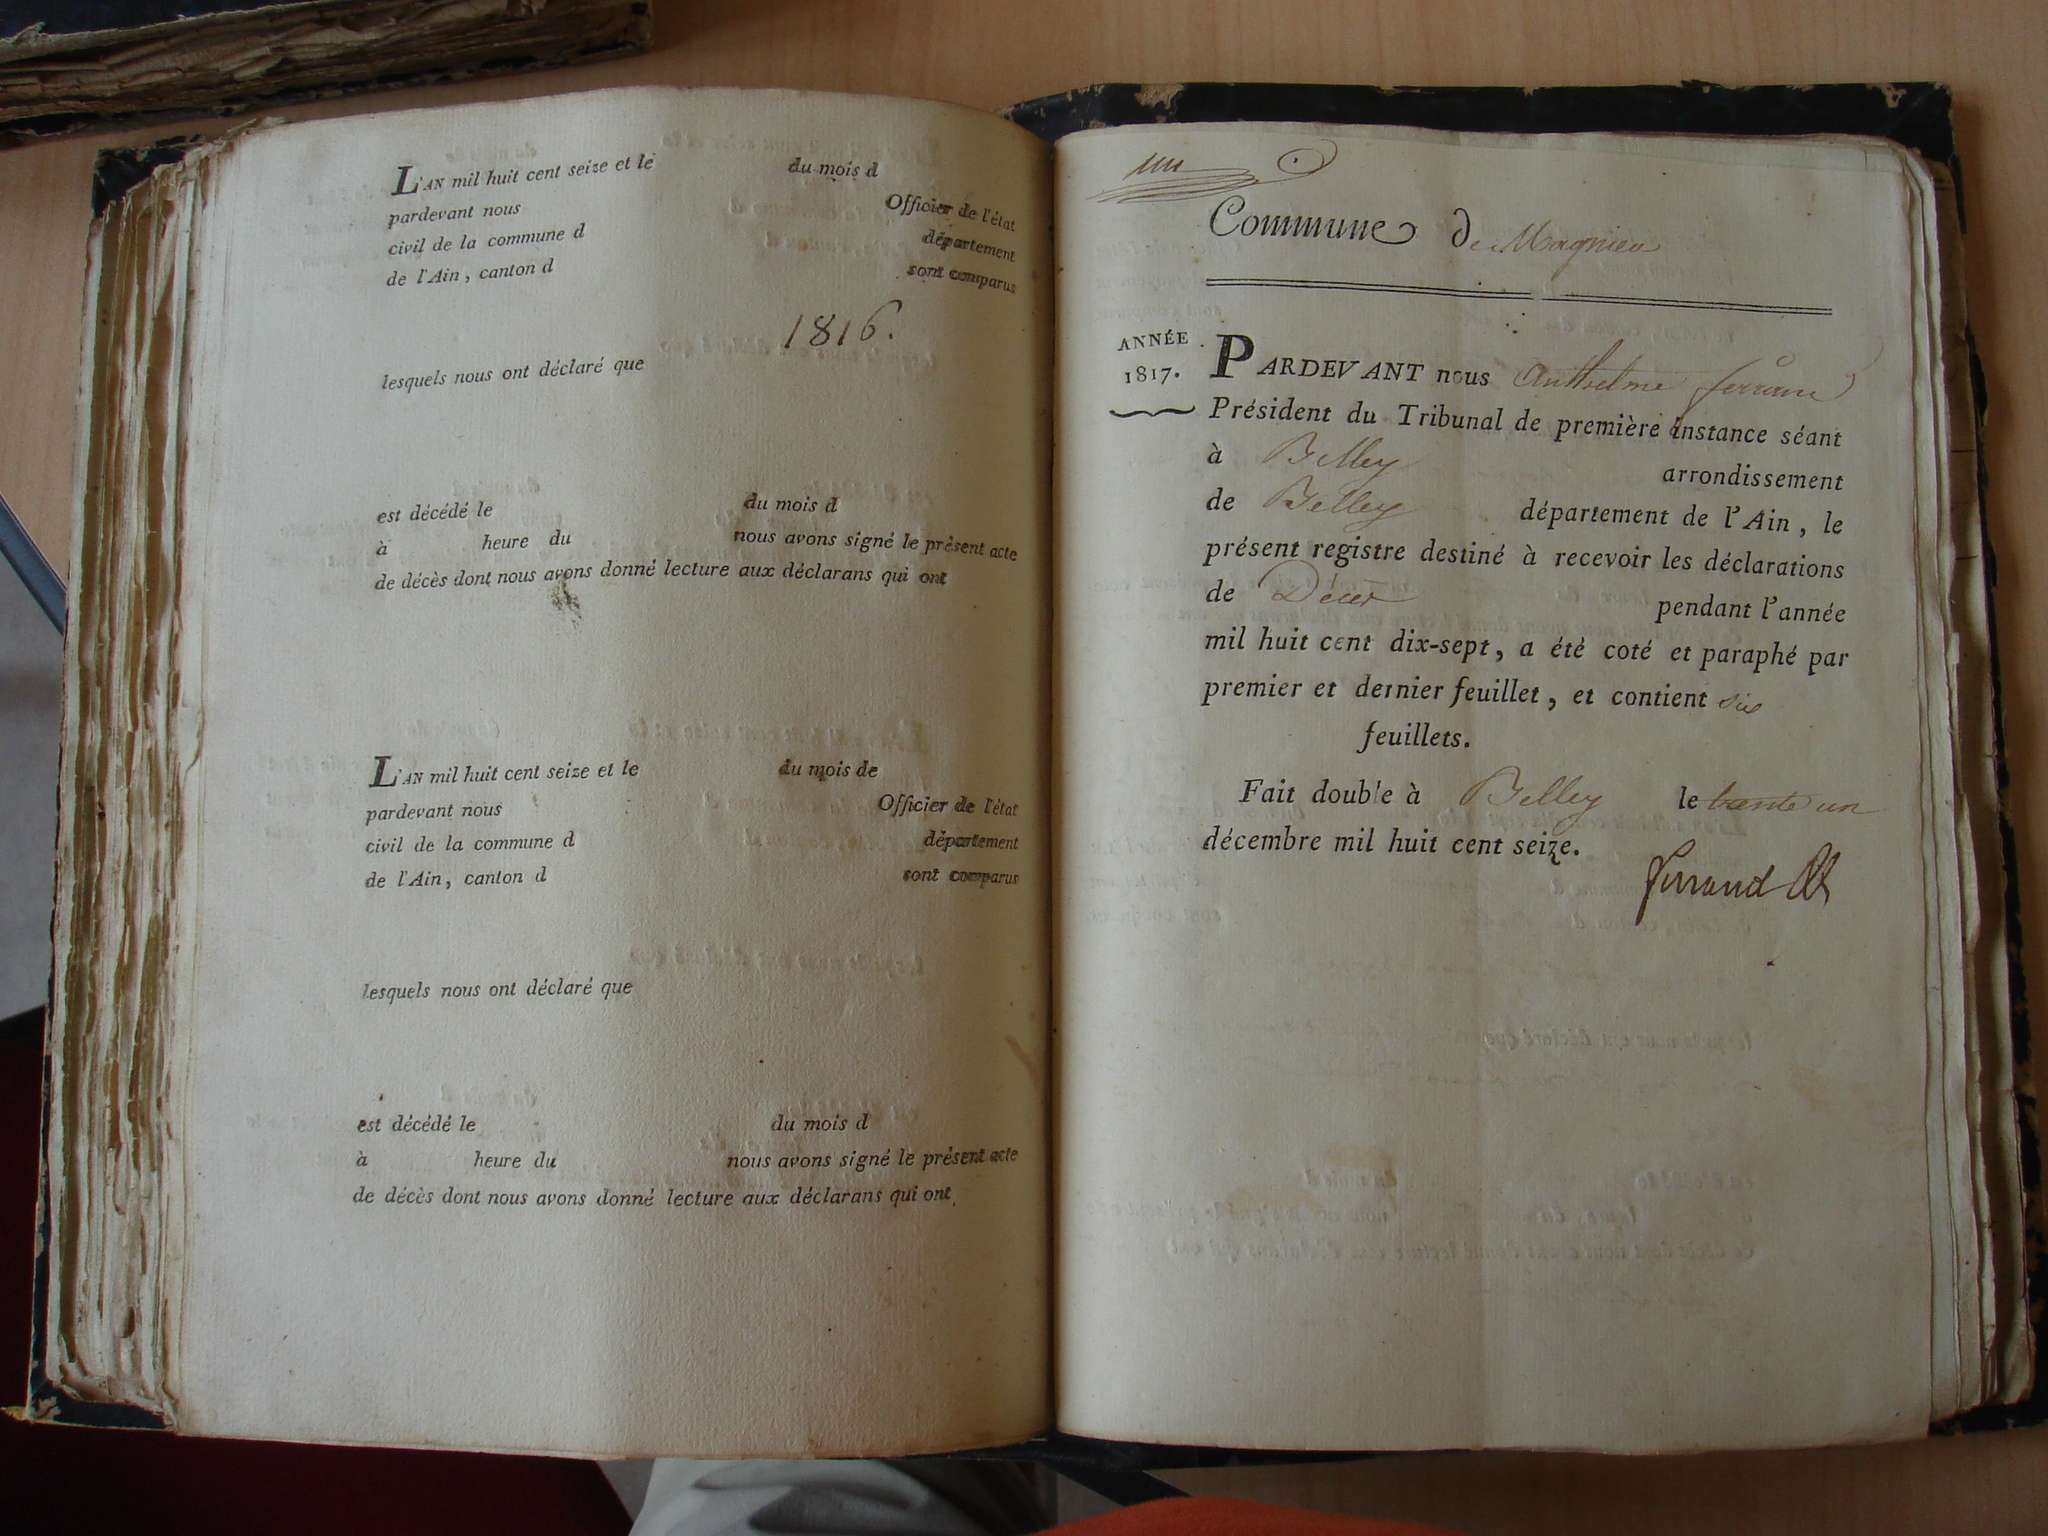 L'AN mil huit cent seize et le du mois d
pardevant nous Officier de l'état
civil de la commune d département
de l'Ain, canton d sont comparus
1816.
lesquels nous ont déclaré que
est décédé le du mois d
à heure du nous avons signé le présent acte
de décès dont nous avons donné lecture aux déclarans qui ont
L'AN mil huit cent seize et le du mois de
pardevant nous Officier de l'état
civil de la commune d département
de l'Ain, canton d sont comparus
lesquels nous ont déclaré que
est décédé le du mois d
à heure du nous avons signé le présent acte
de décès dont nous avons donné lecture aux déclarans qui ont
un
Commune de Magnieu
ANNÉE
1817.
PARDEVANT nous Anthelme ferrand
Président du Tribunal de première instance séant
à Belley arrondissement
de Belley département de l'Ain, le
présent registre destiné à recevoir les déclarations
de Décès pendant l'année
mil huit cent dix-sept, a été coté et paraphé par
premier et dernier feuillet, et contient six
feuillets.
Fait double à Belley le trente un
décembre mil huit cent seize.
ferrand